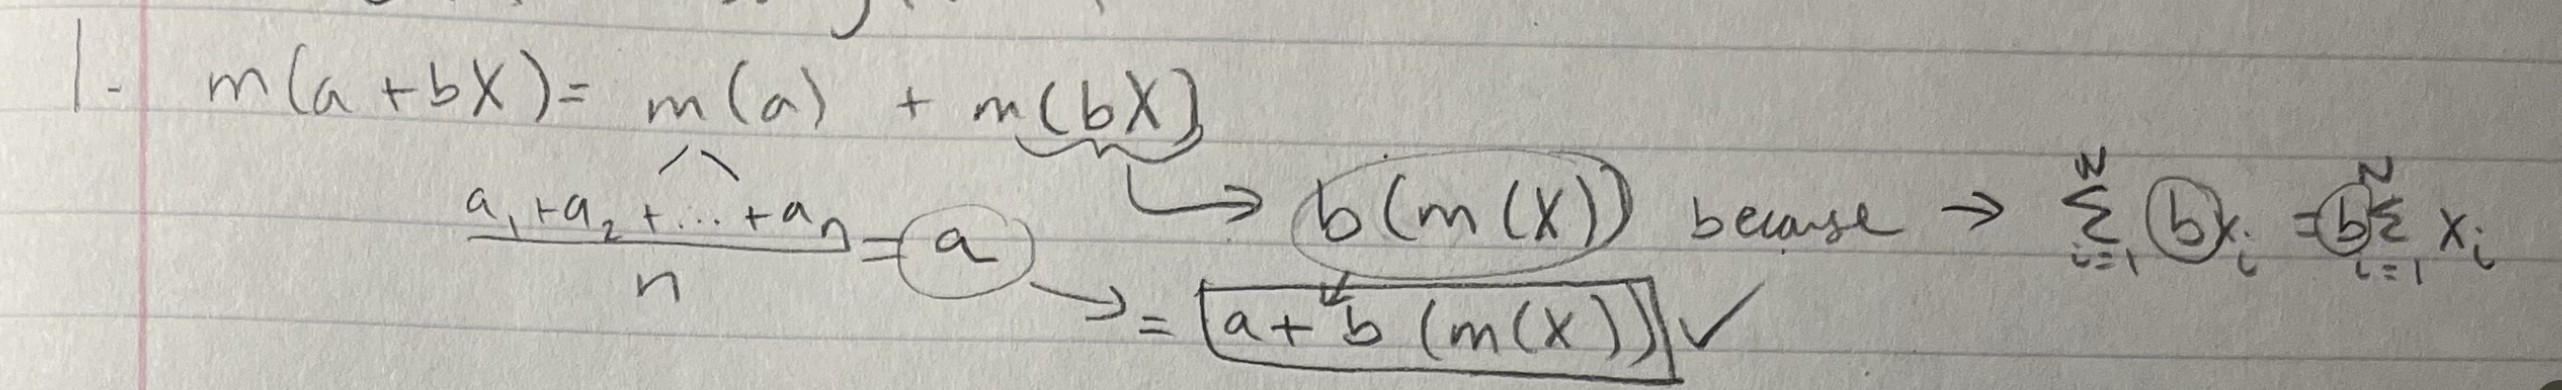 1. m(a + bX) = m(a) + m(bX)
a₁ + a₂ + ... + aₙ / n = a
b(m(X)) because → ∑ᵢ₌₁ᴺ bxᵢ = b∑ᵢ₌₁ᴺ xᵢ
= a + b (m(X)) ✓